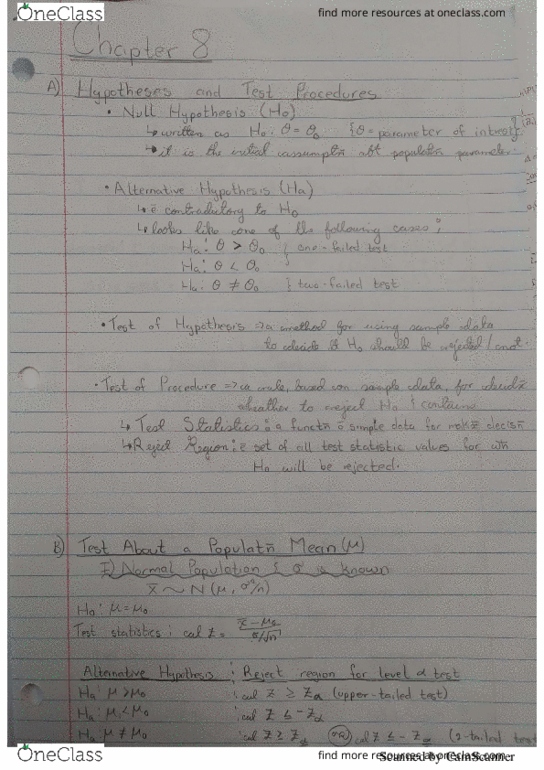 OneClass
find more resources at oneclass.com
Chapter 8
A) Hypotheses and Test Procedures
• Null Hypothesis (H₀)
↳ written as H₀: θ = θ₀ {θ = parameter of interest}
↳ it is the initial assumptn abt populatn parameter.
• Alternative Hypothesis (Ha)
↳ contradictory to H₀
↳ looks like one of the following cases;
Ha: θ > θ₀ } one-tailed test
Ha: θ < θ₀
Ha: θ ≠ θ₀ } two-tailed test
• Test of Hypothesis => a method for using sample data
to decide if H₀ should be rejected/not
• Test of Procedure => a rule, based on sample data, for decidin
wheather to reject H₀ & contains
↳ Test Statistics: a functn sample data for decisn
↳ Reject Region: set of all test statistic values for
H₀ will be rejected.
B) Test About a Populatn Mean (μ)
I) Normal Population & σ is known
x̄ ~ N(μ, σ²/n)
H₀: μ = μ₀
Test statistics: cal z = x̄ - μ₀ / σ/√n
Alternative Hypothesis : Reject region for level α test
Ha: μ > μ₀ : cal Z ≥ Zα (upper-tailed test)
Ha: μ < μ₀ : cal Z ≤ -Zα
Ha: μ ≠ μ₀ : cal Z ≥ OR cal Z ≤ (2-tailed test
OneClass
find more resources at oneclass.com
Scanned by CamScanner